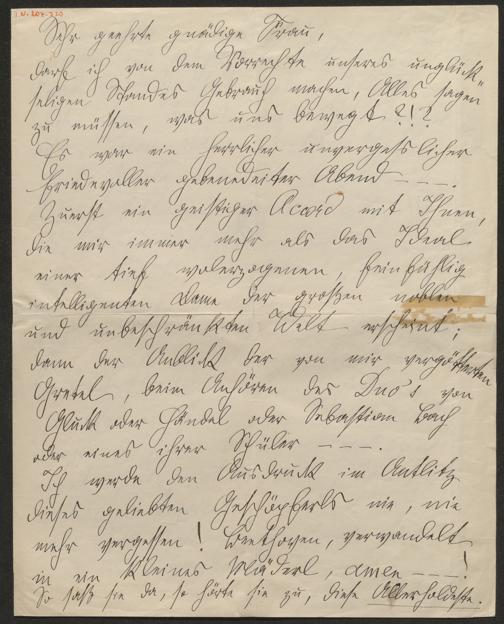 I.N. 207.320
Sehr geehrte gnädige Frau,
darf ich von dem Vorrechte unseres unglück-
seligen Standes Gebrauch machen, Alles sagen
zu müssen, was uns bewegt?!?
Es war ein herrlicher unvergesslicher
friedevoller gebenedeiter Abend — — —.
Zuerst ein geistiger Acord mit Ihnen,
die mir immer mehr als das Ideal
einer tief wolerzogenen, feinfühlig
intelligenten Dame der großen noblen
und unbeschränkten Welt erscheint;
dann der Anblick der von mir vergötterten
Gretel, beim Anhören des Duo's von
Gluck oder Händel oder Sebastian Bach
oder eines ihrer Schüler — — —.
Ich werde den Ausdruck im Antlitz
dieses geliebten Geschöpferls nie, nie
mehr vergessen! Beethoven, verwandelt
in ein kleines Mäderl, amen — — —!
So saß sie da, so hörte sie zu, diese Allerholdeste.